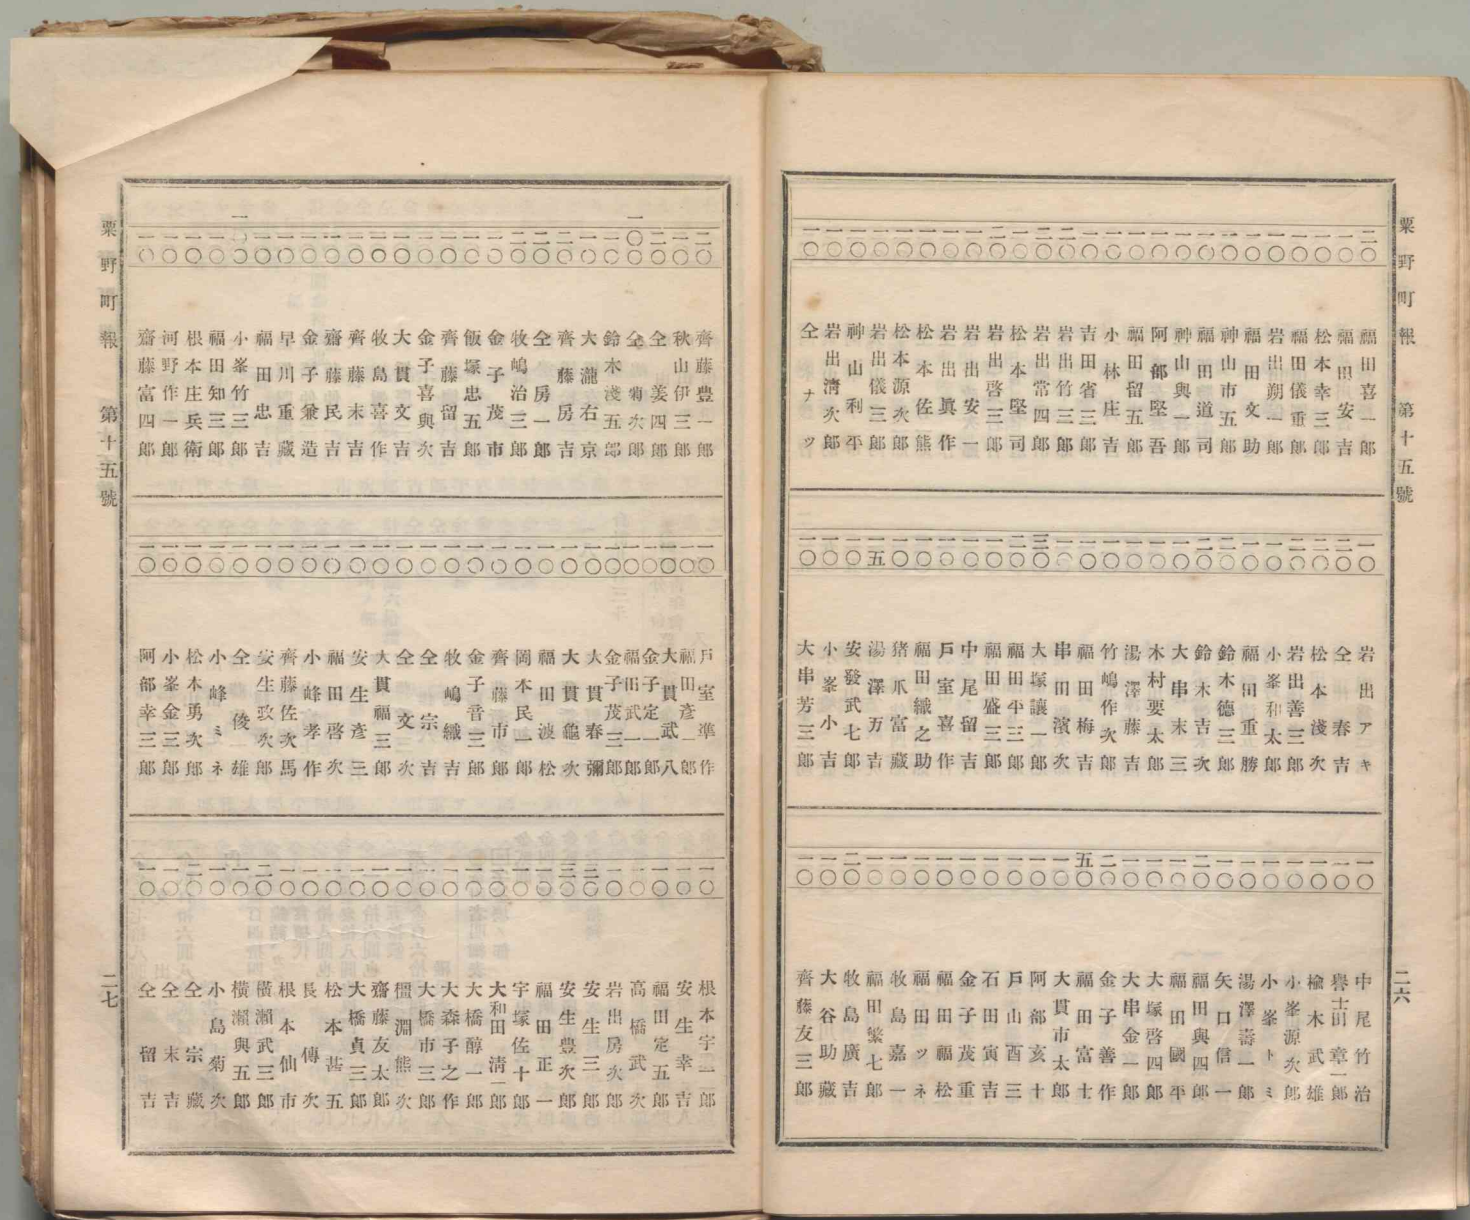 粟野町報　第十五號
二六
二〇　福田喜一郎
一〇　福田安吉
一〇　松本幸三郎
一〇　福田儀重郎
一〇　岩出朔一郎
一〇　福田文助
一〇　神山市五郎
一〇　福田道司
一〇　神山與一郎
一〇　阿部堅吾
一〇　福田留五郎
一〇　小林庄吉
一〇　吉田省三郎
二〇　岩出竹三郎
二〇　岩出常四郎
一〇　松本堅司
二〇　岩出啓三郎
一〇　岩出安一
一〇　岩出眞作
一〇　松本佐熊
一〇　松本源次郎
一〇　岩出儀三郎
一〇　神山利平
一〇　岩出淸次郎
一〇　仝ナツ
一〇　岩出アキ
二〇　仝春吉
一〇　松本淺次郎
二〇　岩出善三郎
一〇　小峯和太郎
一〇　福田重勝
二〇　鈴木德三郎
二〇　鈴木吉次
一〇　大串末三
一〇　木村要太郎
一〇　湯澤藤吉
一〇　竹嶋作次郎
一〇　福田梅吉
一〇　串田濱次
三〇　大塚讓一郎
二〇　福田平三郎
一〇　福田盛三郎
一〇　中尾留吉
一〇　戸室喜作
一〇　福田織之助
一〇　猪爪富藏
一五　湯澤万吉
一〇　安發武七郎
一〇　小峯小吉
一〇　大串芳三郎
一〇　中尾竹治
一〇　譽士田章一郎
一〇　楡木武雄
一〇　小峯源次郎
一〇　小峯トミ
一〇　湯澤壽一郎
一〇　矢口信一
二〇　福田與四郎
一〇　福田國平
一〇　大塚啓四郎
一〇　大串金一郎
二〇　金子善作
五〇　福田富士
一〇　大貫市太郎
一〇　阿部亥十
一〇　戸山酉三
一〇　石田寅吉
一〇　金子茂重
一〇　福田福松
一〇　福田ツネ
一〇　牧島嘉一
一〇　福田繁七郎
二〇　牧島廣吉
一〇　大谷助藏
一〇　齊藤友三郎
粟野町報　第十五號
二七
二〇　齊藤豊一郎
一〇　秋山伊三郎
二〇　仝美四郎
一〇〇　仝菊次郎
一〇　鈴木淺五郎
一〇　大瀧右京
二〇　齊藤房吉
二〇　仝房一郎
二〇　牧嶋治三郎
一〇　金子茂市
一〇　飯塚忠五郎
一〇　齊藤留吉
一〇　金子喜與次
一〇　大貫文吉
一〇　牧島喜作
一〇　齊藤末吉
一〇　齋藤民吉
一〇　金子兼造
一〇　早川重藏
一〇　福田忠吉
一〇　小峯竹三郎
一〇　福田知三郎
一〇　根本庄兵衛
一〇　河野作一郎
一〇　齋藤富四郎
一〇　戸室準作
一〇　福田彥一郎
一〇　大貫武八
一〇　金子定一郎
一〇　福田武一郎
一〇　金子茂三郎
一〇　大貫春彌
一〇　大貫龜次
一〇　福田波松
一〇　岡本民一郎
一〇　齊藤市郎
一〇　金子音三郎
一〇　牧嶋織吉
一〇　仝宗吉
一〇　仝文次
一〇　大貫福三郎
一〇　安生彥三
一〇　福田啓次
一〇　小峰孝作
一〇　齊藤佐次馬
一〇　安生政次郎
一〇　仝俊雄
一〇　小峰ミネ
一〇　松本勇次郎
一〇　小峯金三郎
一〇　阿部幸三郎
一〇　根本宇一郎
一〇　安生幸吉
一〇　福田定五郎
一〇　高橋武次
一〇　岩出房次郎
三〇　安生三郎
三〇　安生豊次郎
一〇　福田正一
一〇　宇塚佐十郎
一〇　大和田淸一郎
一〇　大橋醇一郎
一〇　大森子之作
一〇　大橋市三郎
一〇　橿淵熊次
一〇　齋藤友太郎
一〇　大橋貞三郎
一〇　松本甚五
一〇　長傳次
一〇　根本仙市
二〇　橫瀨武三郎
一〇　橫瀨與五郎
一〇　小島菊次
二〇　仝宗藏
一〇　仝末吉
一〇　仝留吉